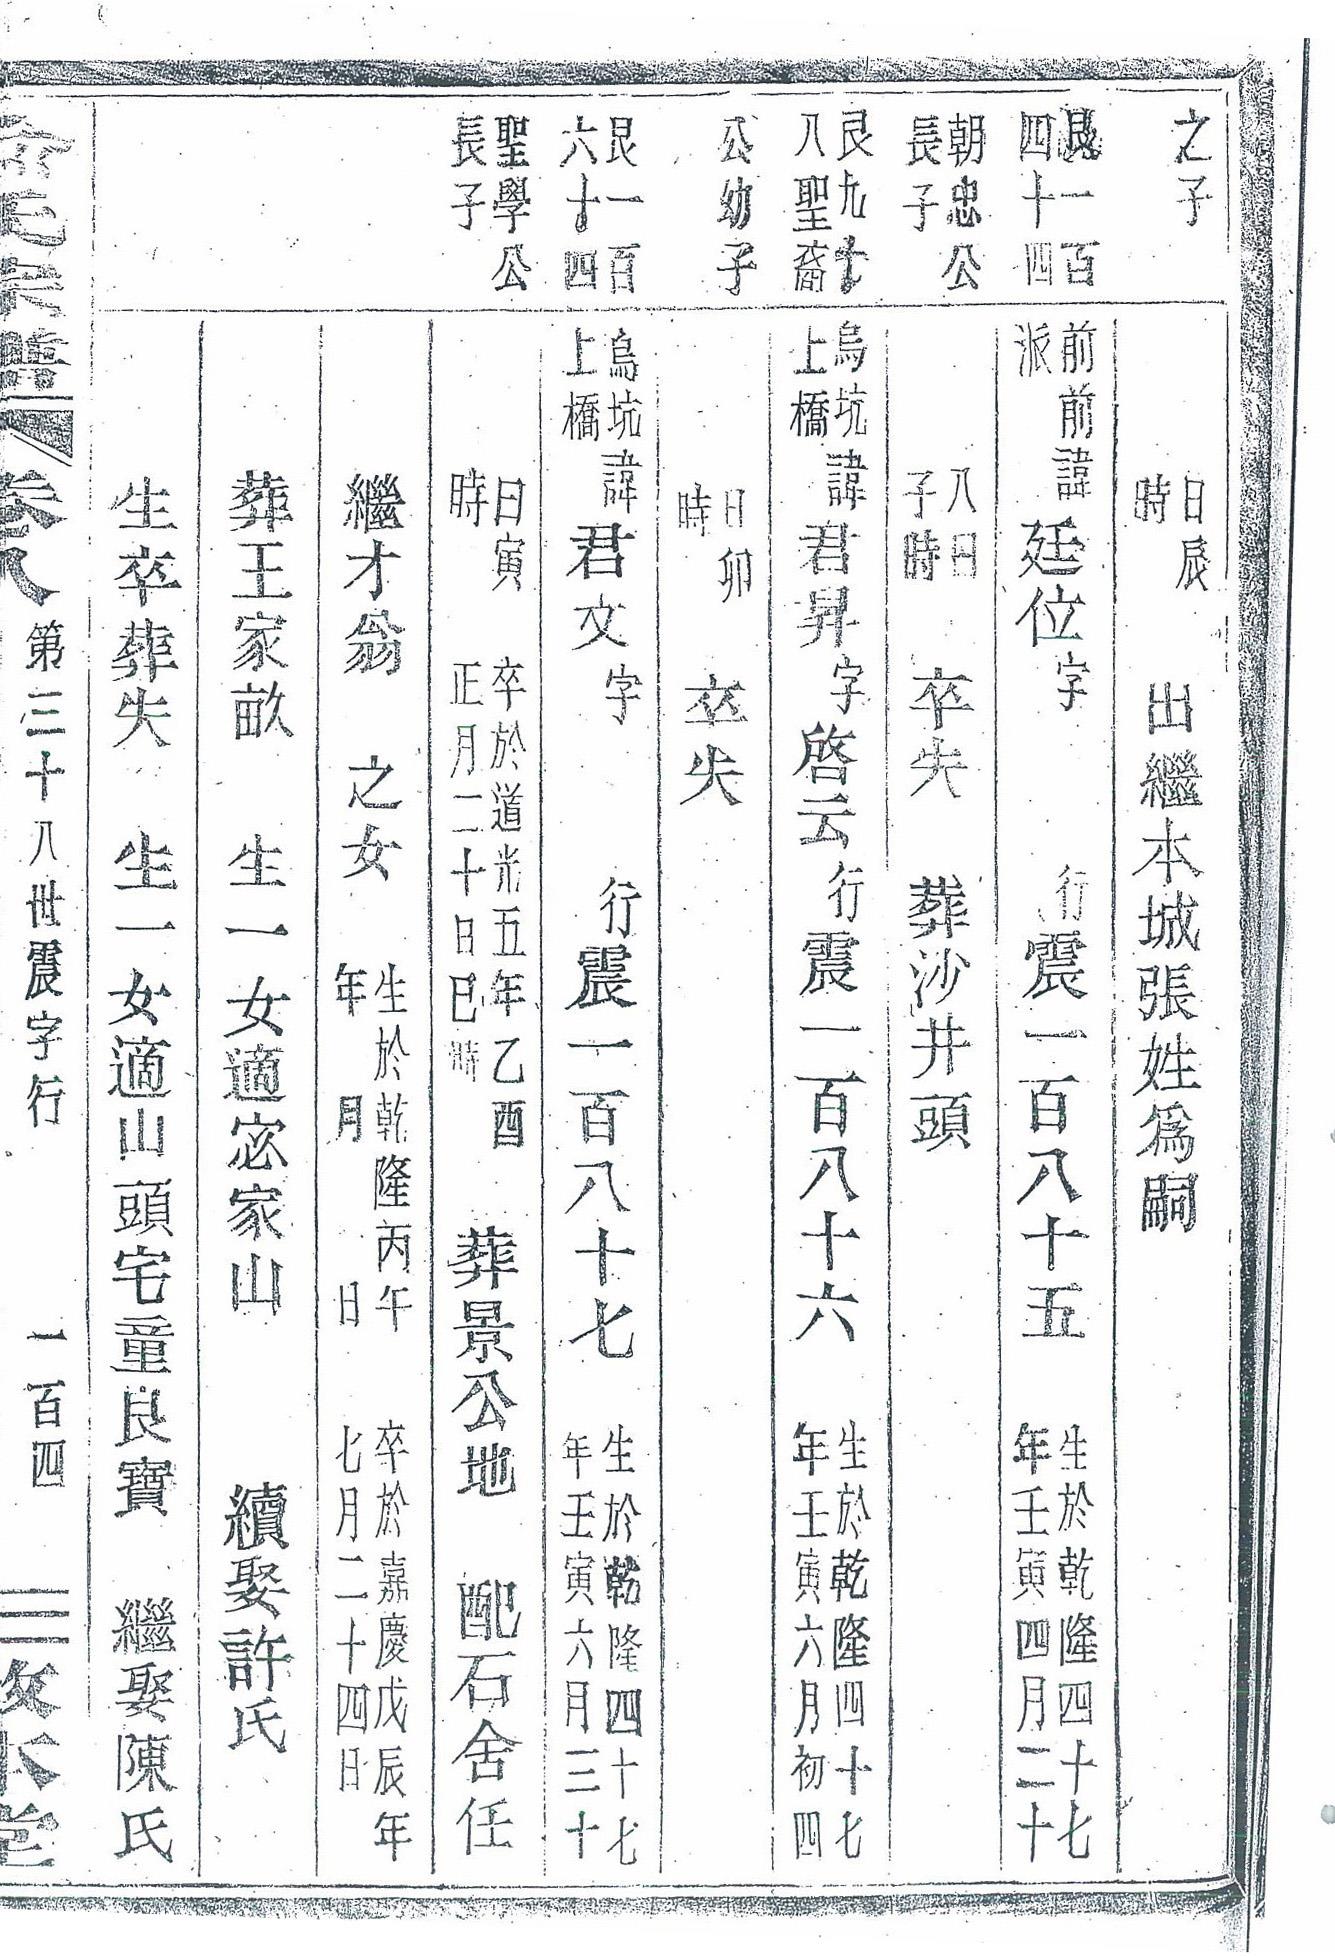 之子
日辰
時
出繼本城張姓爲嗣
艮一百
四十四
前前
派
諱廷位字
行震一百八十五
生於乾隆四十七
年壬寅四月二十
朝忠公
長子
八日
子時
卒失
葬沙井頭
艮九十
八聖裔
烏坑
上橋
諱君昇字啓云行震一百八十六
生於乾隆四十七
年壬寅六月初四
公幼子
日卯
時
卒失
艮一百
六十四
烏坑
上橋
諱君文字
行震一百八十七
生於乾隆四十七
年壬寅六月三十
聖學公
長子
日寅
時
卒於道光五年乙酉
正月二十日巳時
葬景公地
配石舍任
繼才翁
之女
生於乾隆丙午
年月日
卒於嘉慶戊辰年
七月二十四日
葬王家畝
生一女適宓家山
續娶許氏
生卒葬失
生一女適山頭宅童良寶
繼娶陳氏
氏宗譜
卷八
第三十八世震字行
一百四
本堂